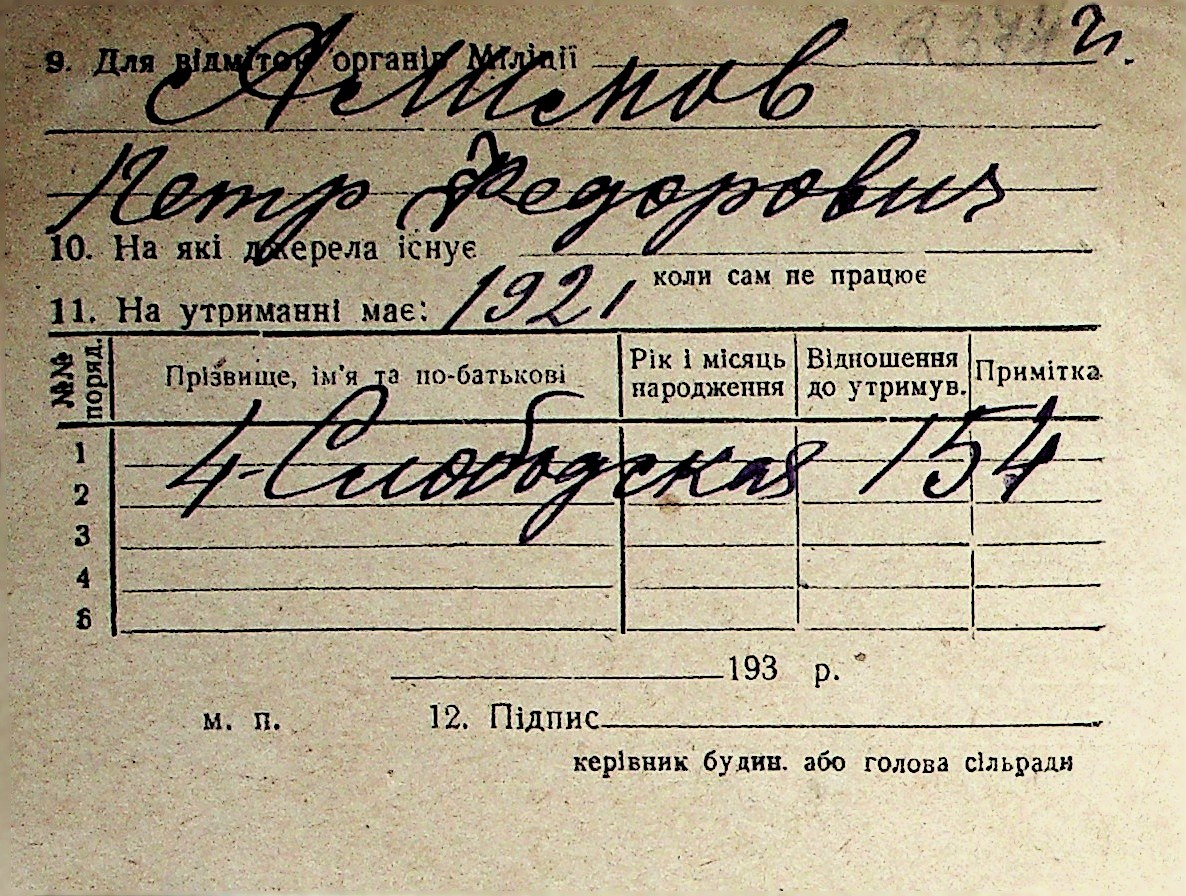 9. Для відміток органів Міліції
Петр Федорович
10. На які джерела існує
коли сам не працює
11. На утриманні має: 1921
№№ поряд.
Прізвище, ім'я та по-батькові
Рік і місяць народження
Відношення до утримув.
Примітка
1
4-Слободская 154
2
3
4
5
193 р.
м. п. 12. Підпис
керівник будин. або голова сільради